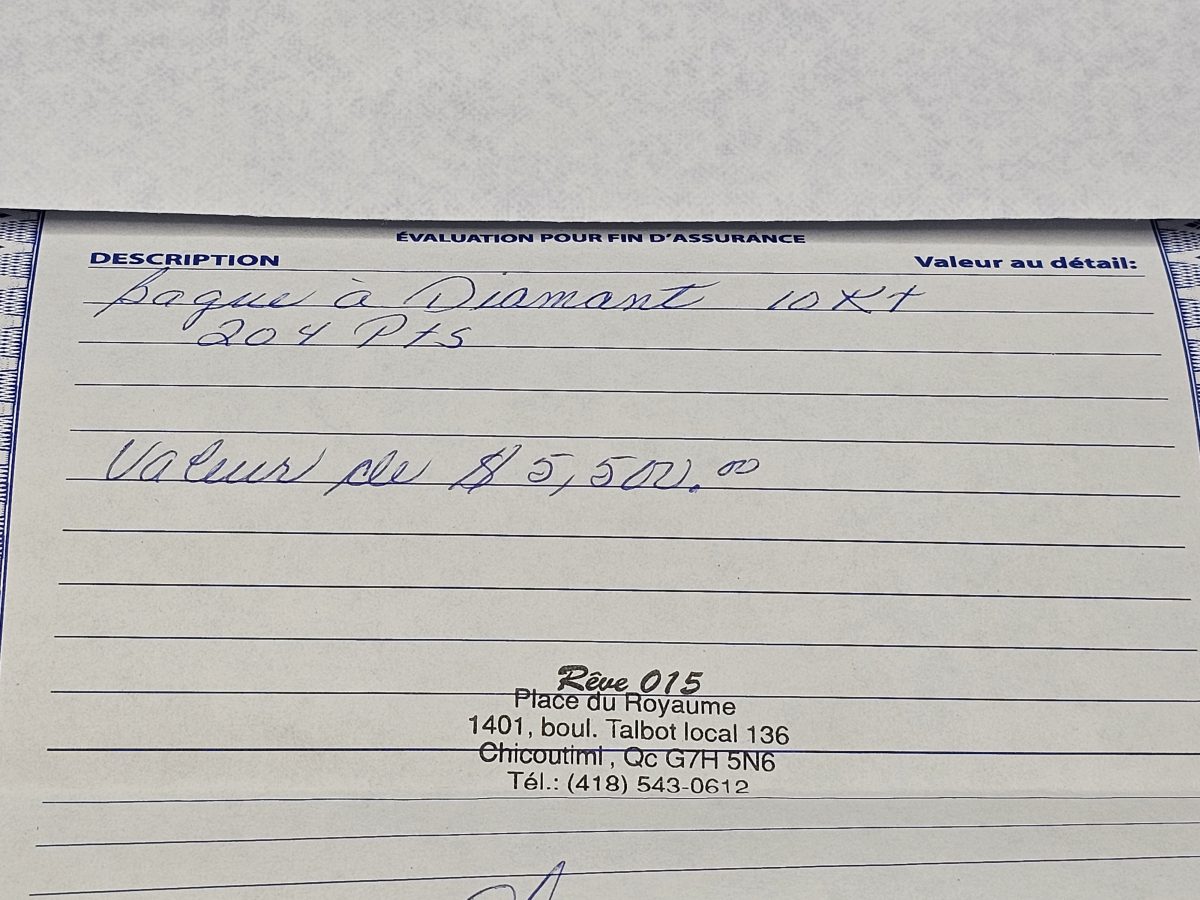 ÉVALUATION POUR FIN D'ASSURANCE
DESCRIPTION Valeur au détail:
Bague à Diamant 10 Kt
204 Pts
Valeur de $5,500.00
Rêve 015
Place du Royaume
1401, boul. Talbot local 136
Chicoutimi, Qc G7H 5N6
Tél.: (418) 543-0612